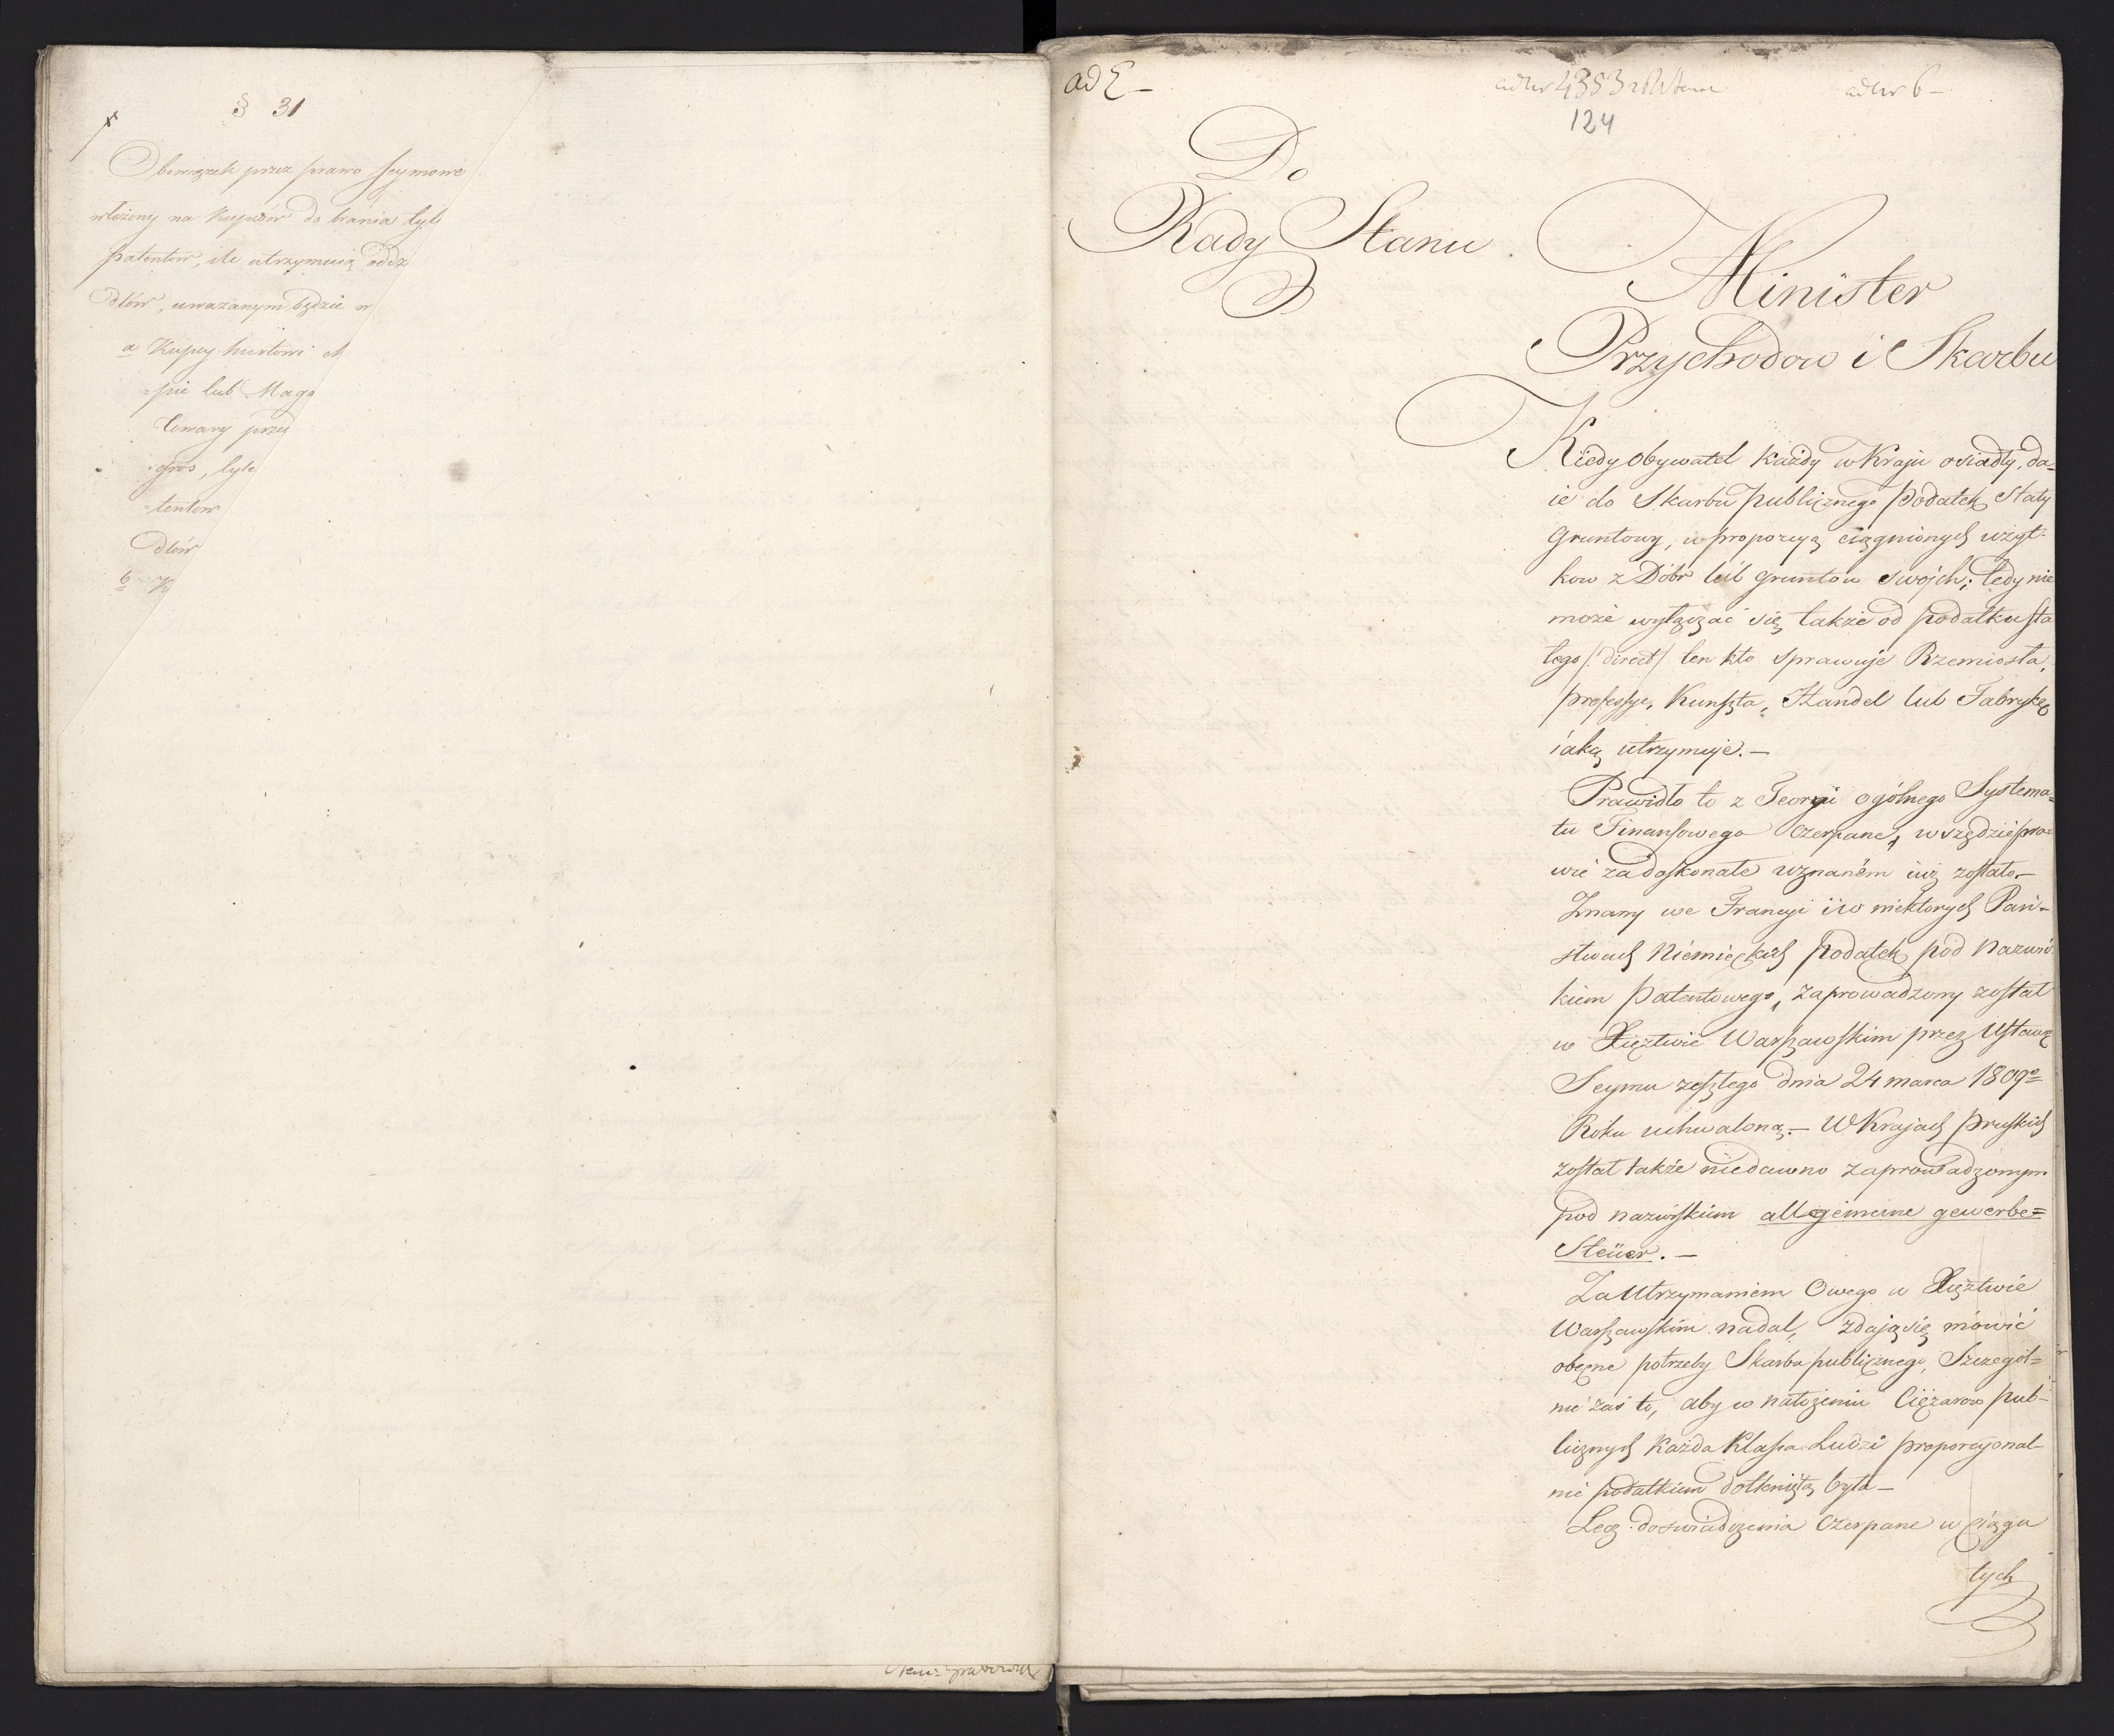 § 31
Obowiązek przez prawo Seymowe
włożony na Kupców do brania tyle
patentów, ile utrzymuią odz
dłów, uważanym będzie w
a Kupcy hurtowi
=pie lub Maga
towary przed
gros, tyle
=tentow
dłów
b
ad E –
ad Nr 4353
ad Nr 6 –
124
Do
Rady Stanu
Minister
Przychodow i Skarbu
Kiedy Obywatel każdy w Kraju osiadły, da-
ie do Skarbu publicznego podatek Stały
Gruntowy, w proporcyą ciągnionych użyt-
kow z Dóbr lub gruntow swoich; tedy nie
może wyłączać się także od podatku sta
łego /: direct / ten kto sprawuje Rzemiosła,
professye, Kunszta, Handel lub Fabrykę
iaką utrzymuje. –
Prawidło to z Teoryi ogólnego Systema=
tu Finansowego czerpane, wszędzie pra=
wie za doskonałe uznaném iuż zostało. –
Znany we Francyi i w niektorych Pań-
stwach Niemieckich podatek pod nazwis
kiem Patentowego, zaprowadzony został
w Xięztwie Warszawskim przez Ustawę
Seymu zeszłego dnia 24 marca 1809º
Roku uchwaloną. – W Krajach Pruskich
został także niedawno zaprowadzonym
pod nazwiskiem allgemeine gewerbe=
Steüer. –
Za Utrzymaniem Owego w Xięztwie
Warszawskim nadal, zdają się mówić
obecne potrzeby Skarbu publicznego, Szczegól=
nie zaś to, aby w nałożeniu Ciężarow pub-
licznych Każda Klassa Ludzi proporcyonal-
nie podatkiem dotkniętą była –
Lecz doswiadczenia Czerpane w ciągu
tych